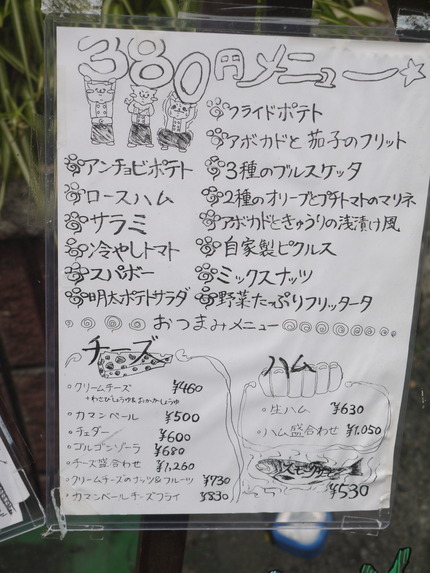 380円メニュー
フライドポテト
アボカドと茄子のフリット
アンチョビポテト
3種のブルスケッタ
ロースハム
2種のオリーブとプチトマトのマリネ
サラミ
アボカドときゅうりの浅漬け風
冷やしトマト
自家製ピクルス
スパボー
ミックスナッツ
明太ポテトサラダ
野菜たっぷりフリッタータ
おつまみメニュー
チーズ
クリームチーズ ¥460
カマンベール ¥500
チェダー ¥600
ゴルゴンゾーラ ¥680
チーズ盛合わせ ¥1,260
クリームチーズのナッツ&フルーツ ¥730
カマンベールチーズフライ ¥830
ハム
生ハム ¥630
ハム盛合わせ ¥1,050
¥530